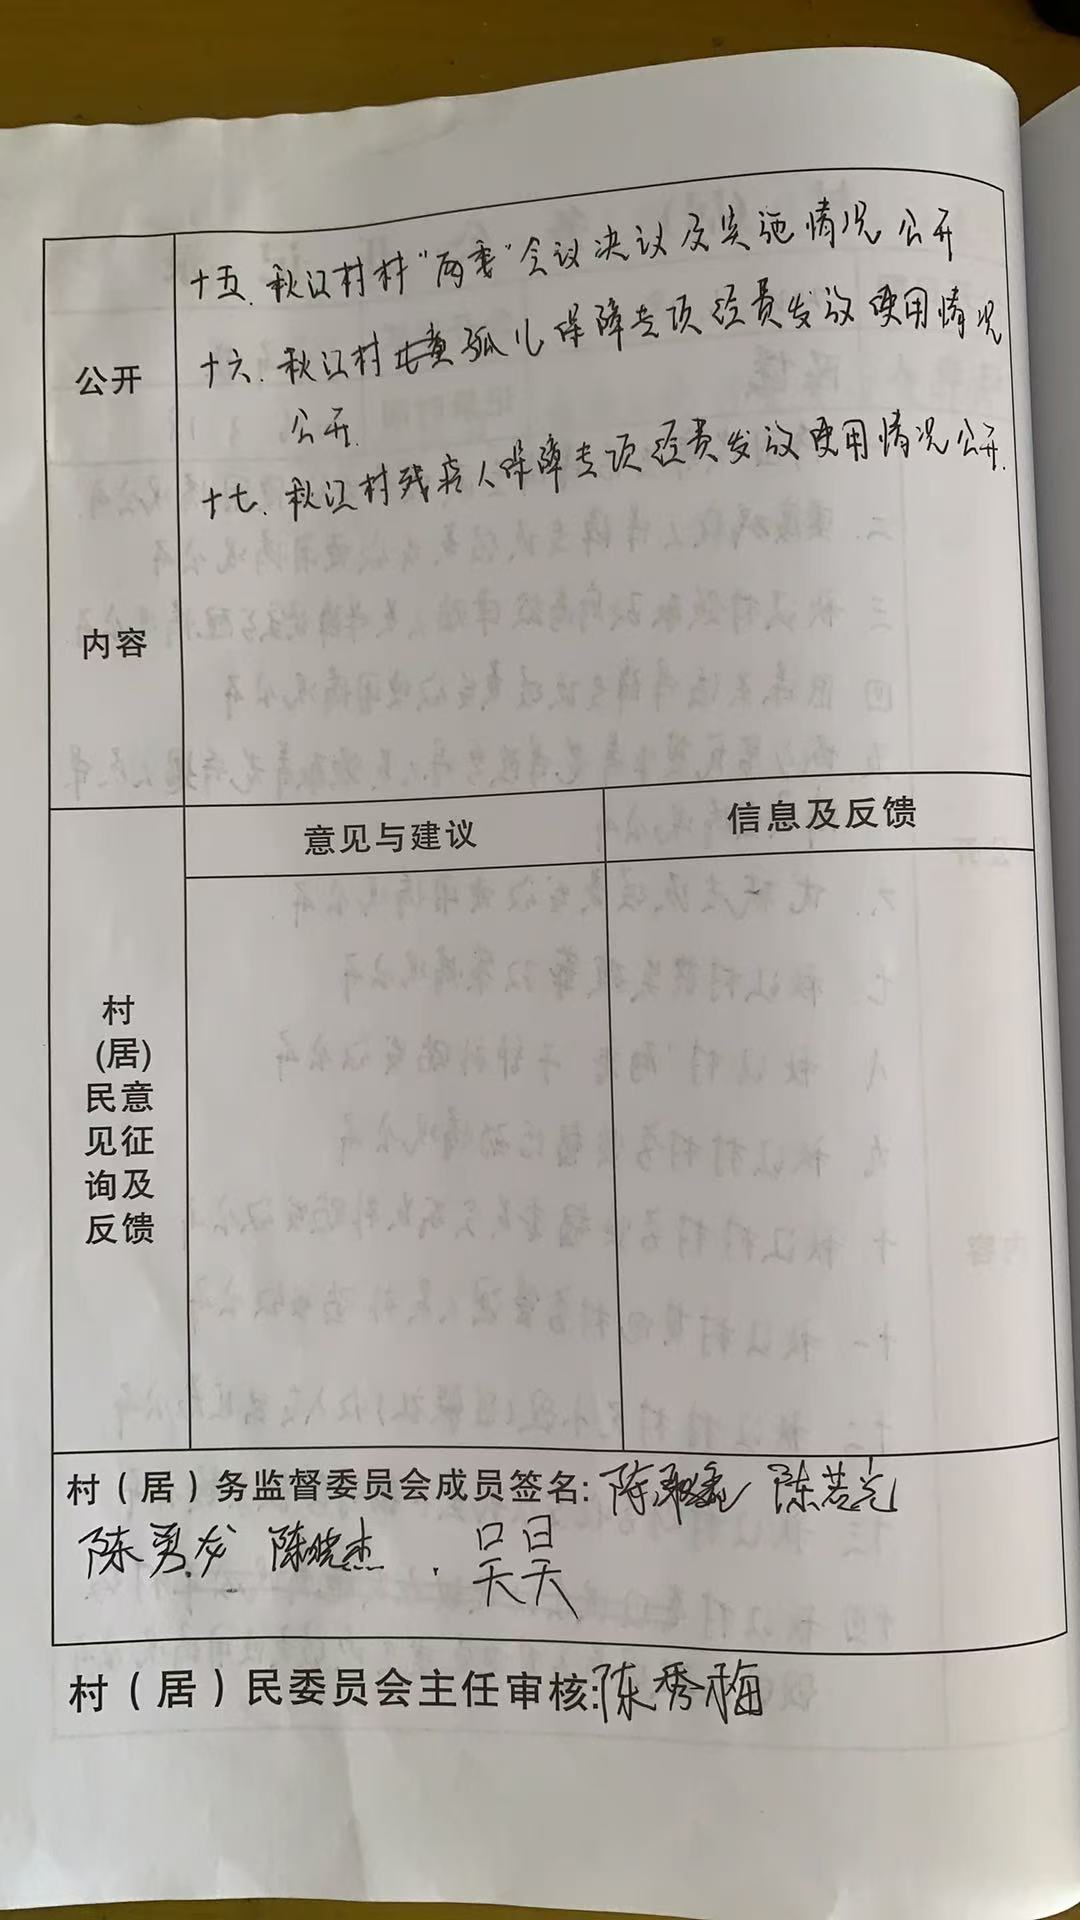 公开
内容
十五、秋江村村“两委”会议决议及实施情况公开
十六、秋江村孤儿保障专项经费发放使用情况
公开.
十七、秋江村残疾人保障专项经费发放使用情况公开.
意见与建议
信息及反馈
村
(居)
民意
见征
询及
反馈
村（居）务监督委员会成员签名: 陈 陈若光
陈勇龙 陈晓杰 . 吴昊
村（居）民委员会主任审核:陈秀梅